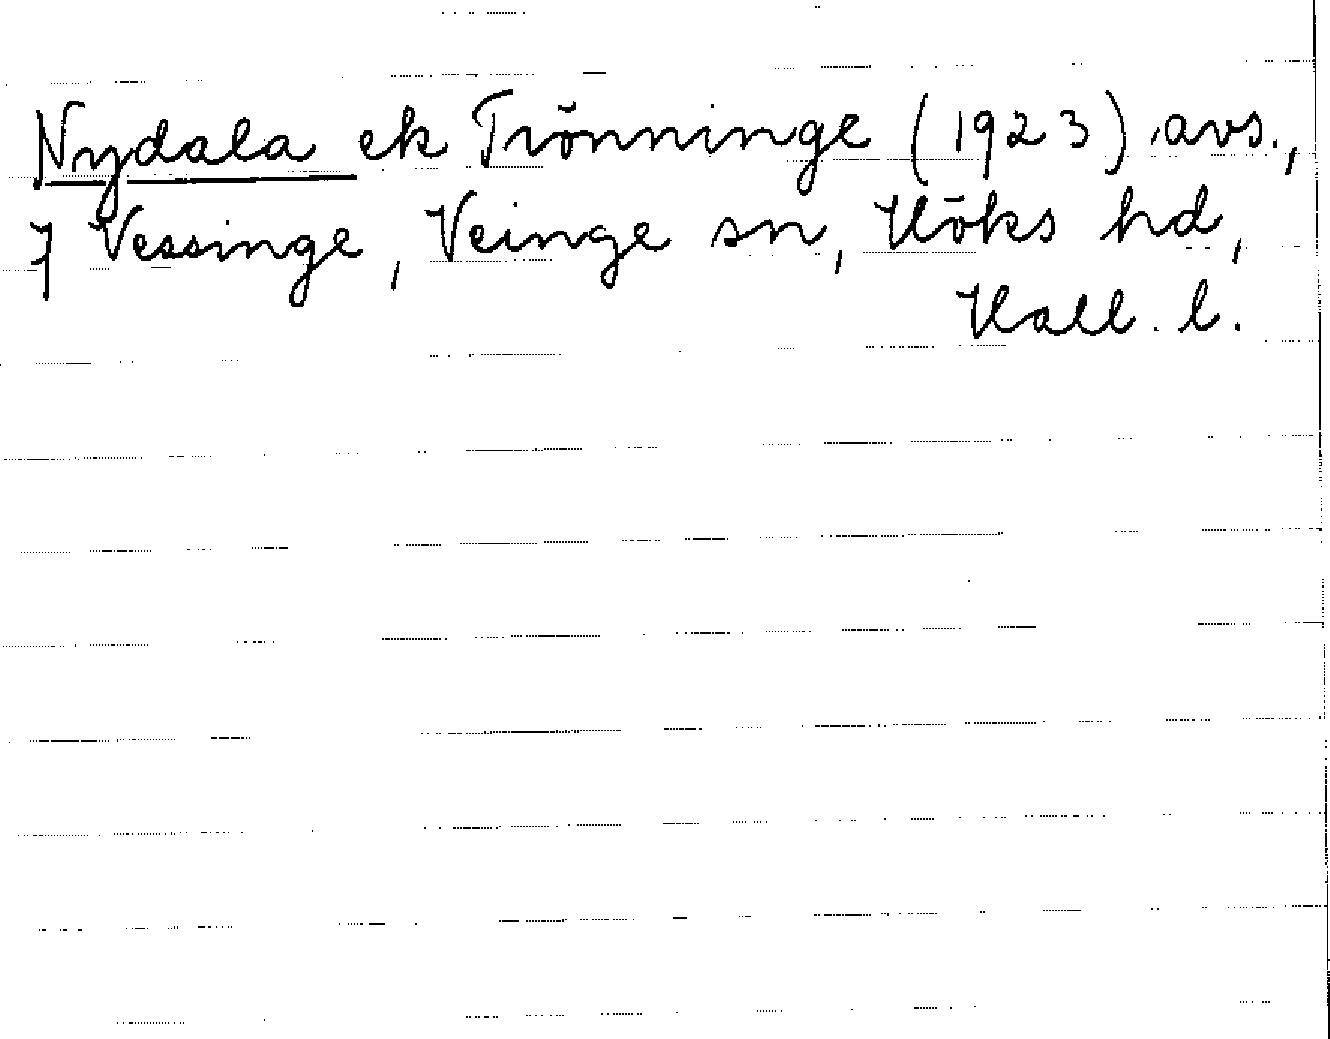 Nydala ek Trönninge (1923) avs.,
7 Vessinge, Veinge sn, Höks hd,
Hall. l.